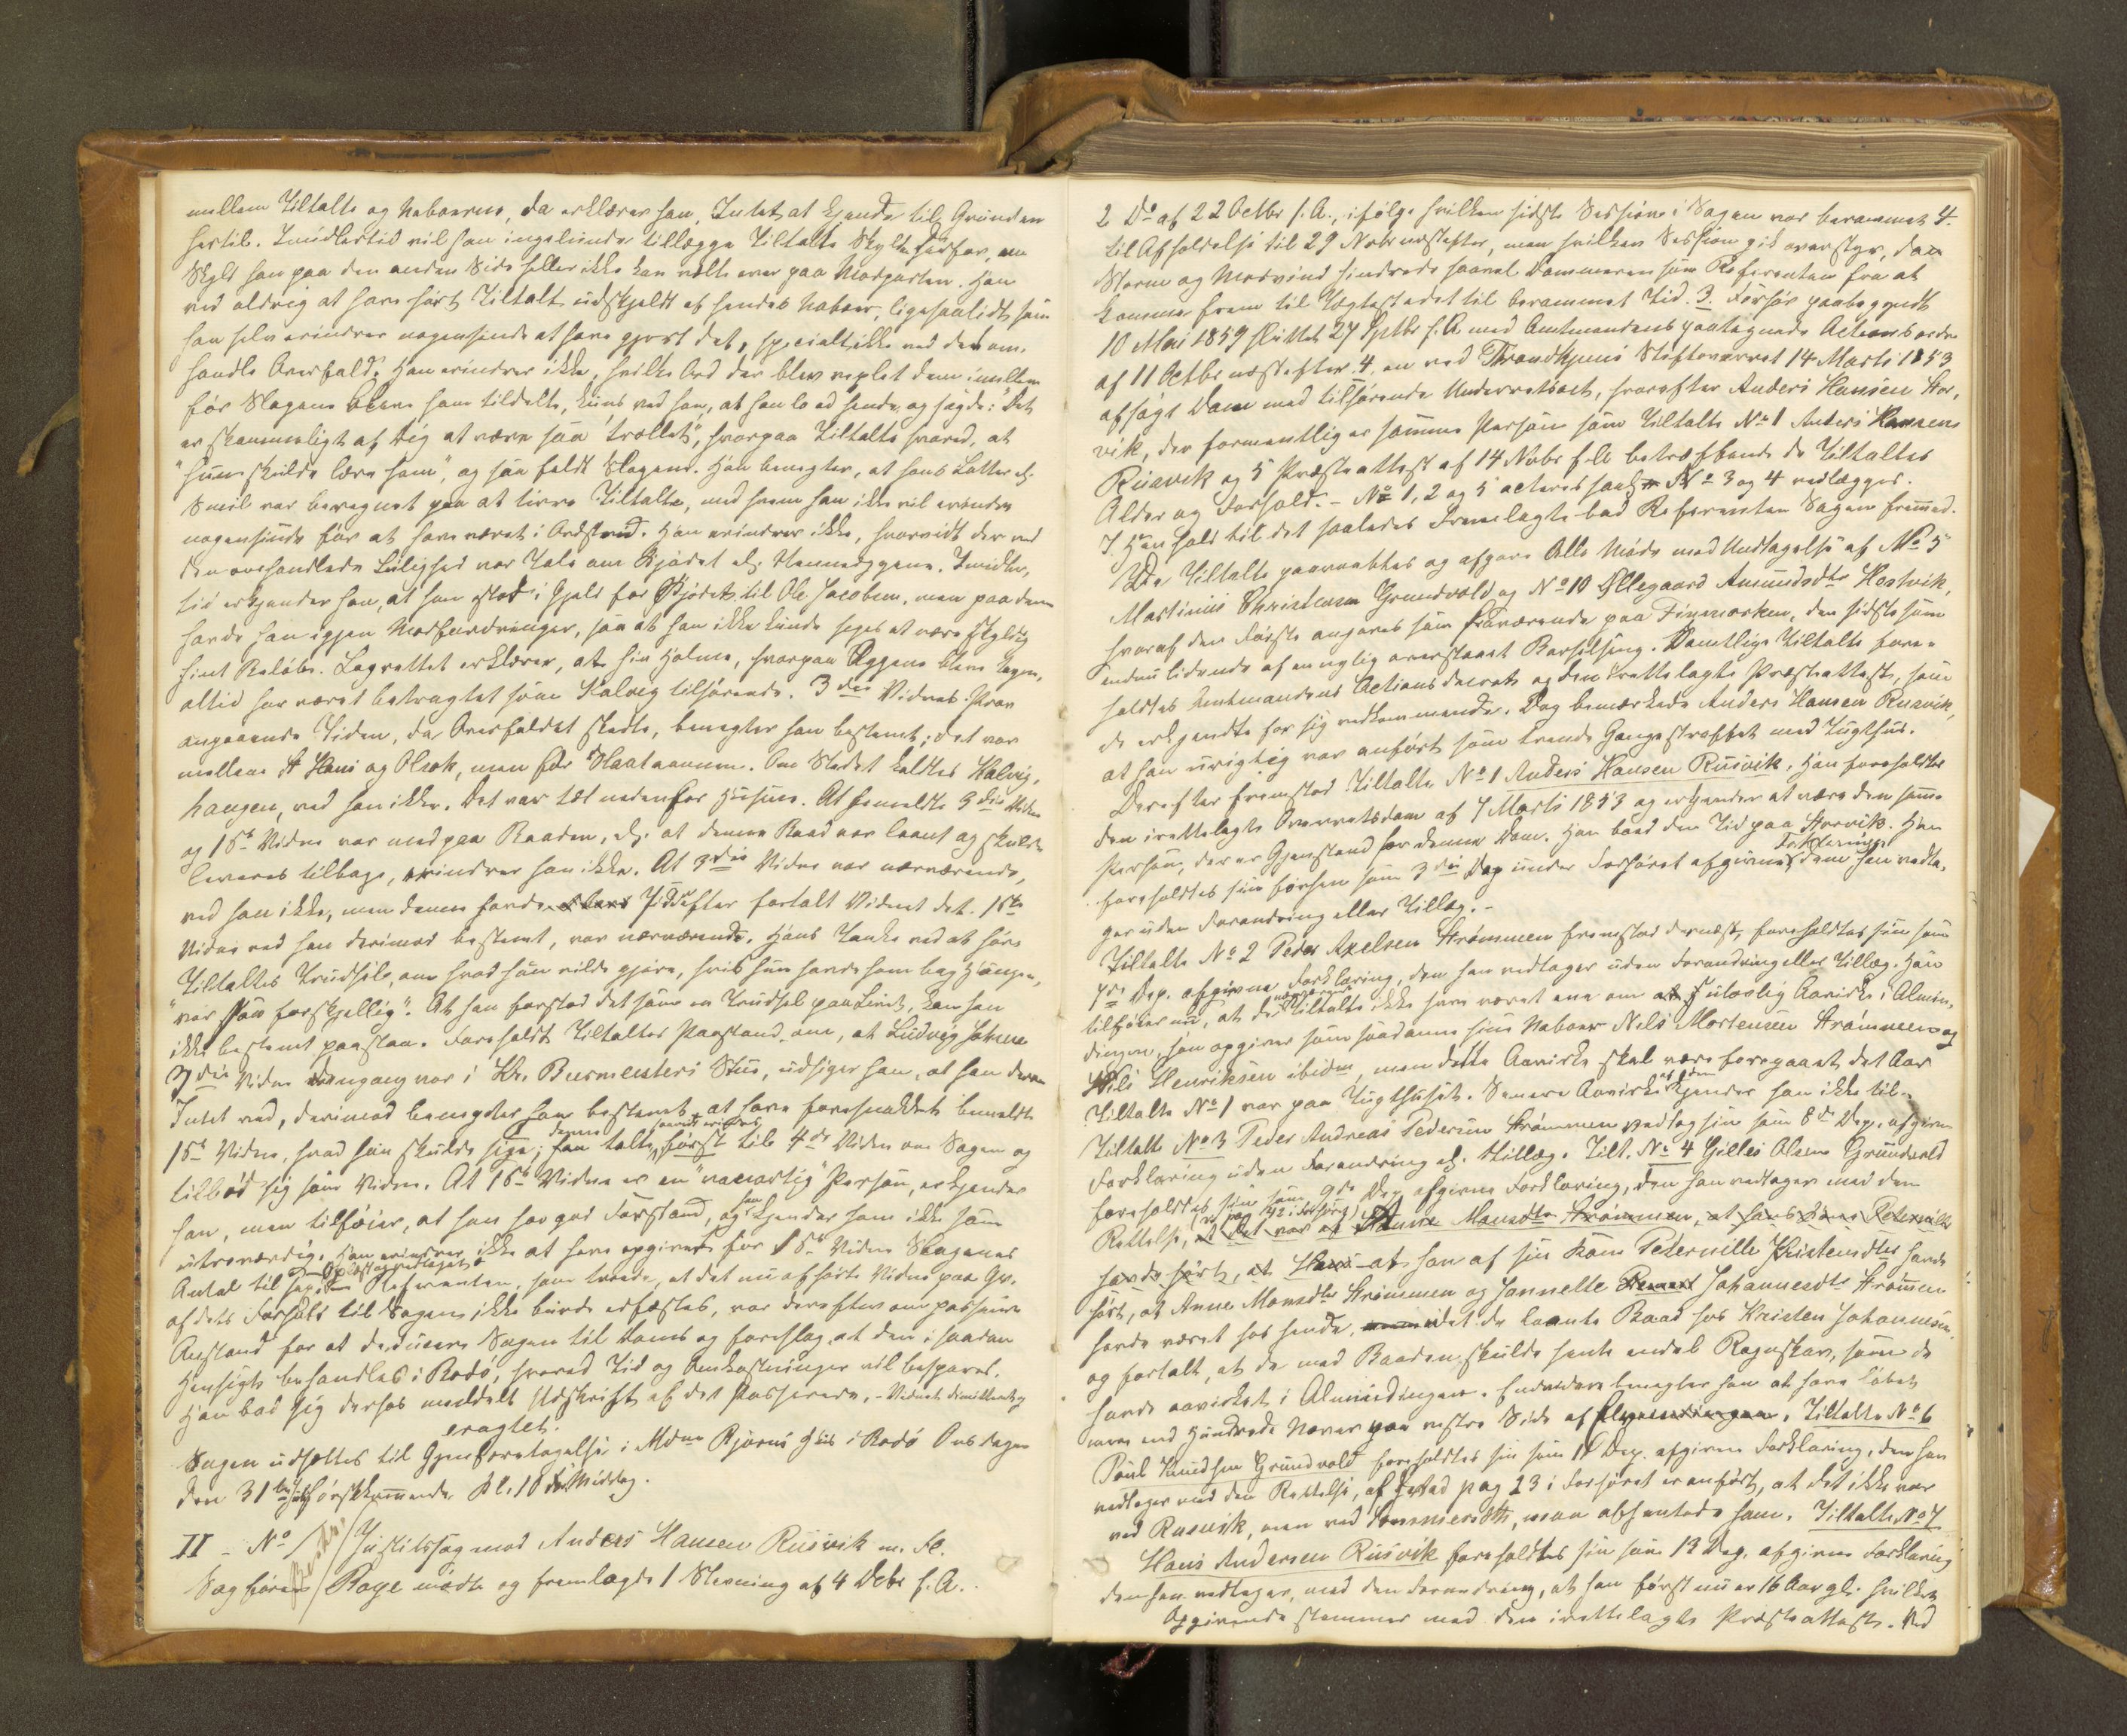 mellem Tiltalte og Naboerne, da erklærer han, Intet at kjende til Grunden
hertil. Imidlertid vil han ingenlunde tillægge Tiltalte Skylden derfor, en
Skyld han paa den anden Side heller ikke kan vælte over paa Modparten. Han
ved aldrig at have hørt Tiltalte udskjeldt af hendes Naboer, ligesaalidt som
han selv erindrer nogensinde at have gjort det, specialt ikke ved det om-
handlede Overfald. Han erindrer ikke, hvilke Ord der blev vexlet dem imellem
før Slagene bleve ham tildelte, kuns ved han, at han lo ad hende og sagde: "Det
er skammeligt af Dig at være saa trollet", hvorpaa Tiltalte svared, at
"hun skulde lære ham", og saa faldt Slagene. Han benegter, at hans Latter el.
Smil var beregnet paa at tirre Tiltalte, med hvem han ikke vil erindre
nogensinde før at have været i Ordstrid. Han erindrer ikke, hvorvidt der ved
den omhandlede Leilighed var Tale om Kjødet el. Æggene. Imidler-
tid erkjender han, at han stod i Gjeld for Kjødet til Ole Jacobsen, men paa denne
havde han igjen Modfordringer, saa at han ikke kunde siges at være skyldig
hint Beløb. Lagrettet erklærer, at hin Holme, hvorpaa Æggene bleve tagne,
altid har været betragtet som Kalvig tilhørende. 3die Vidnes Prov
angaaende Tiden, da Overfaldet skede, benegter han bestemt; det var
mellem St Hans og Olsok, men før Slaataannen. Om Stedet kaldtes Kalvig-
haugen, ved han ikke. Det var tæt nedenfor Husene. At bemeldte 3die Vidne
og 15de Vidne var med paa Baaden, el. at denne Baad var laant og skulde
leveres tilbage, erindrer han ikke. At 3die Vidne var nærværende,
ved han ikke, men denne havde siden efter fortalt Vidnet det. 15de
Vidne ved han derimod bestemt, var nærværende. Hans Tanke ved at høre
Tiltaltes Trudsel, om hvad hun vilde gjøre, hvis hun havde ham bag Haugen,
"var saa forskjellig". At han forstod det som en Trudsel paa Livet, kan han
ikke bestemt paastaa. Foreholdt Tiltaltes Paastand om, at Ludvig Johnsen
7die Vidne dengang var i Hr. Burmeisters Stue, udsiger han, at han derom
Intet ved, derimod benegter han bestemt at have foresnakket bemeldte
15de Vidne, hvad han skulde sige; han talte først til 4de Vidne om Sagen og
tilbød sig som Vidne. At 15de Vidne er en "rar artig" Person, erkjender
han, men tilføier, at han har god Forstand, og han kjender ham ikke som
utroværdig. Han erindrer ikke at have opgivet for 15de Vidne Slagenes
Antal til sex. Oplæst og vedtaget.
Referenten, som troede, at det nu afhørte Vidne paa Gr.
af dets Forhold til Sagen ikke burde edfæstes, var derefter om passende
Anstand for at deducere Sagen til Doms og foreslog, at den i saadan
Hensigt behandles i Rødø, hvorved Tid og Omkostninger vil bespares.
Han bad sig derhos meddelt Udskrift af det Passerede. - Vidnet dimitteret og
eragtet.
Sagen udsættes til Gjenforetagelse i Md. Bjørns Huus i Rodø Onsdagen
den 31te førstkommende Kl. 10 Formiddag.
II - No / Justitssag mod Anders Hansen Rusvik m. Fl.
Sagfører Roge mødte og fremlagde 1 Stevning af 4 Debr f. A.
2 Do af 22 Octbr f. A., ifølge hvilken sidste Session i Sagen var berammet
til Afholdelse til 29 Novbr næstefter, men hvilken Session gik overstyr, da
Storm og Modvind hindrede saavel Dommeren som Referenten fra at
komme frem til Tægtestedet til berammet Tid. 3. Forhør paabegyndt
10 Mai 1859 sluttet 27 Septbr f. A. med Amtmandens paategnede Actionsordre
af 11 Octbr næstefter. 4. en ved Throndhjems Stiftsoverret 14 Marts 1853
afsagt Dom med tilhørende Underretsact, hvorefter Anders Hansen Hor-
vik, der formentlig er samme Person som Tiltalte No 1 Anders Hansen
Rusvik og 5 Præsteattest af 14 Novbr f. A. betræffende de Tiltaltes
Alder og Forhold. - No 1, 2 og 5 acteres hvorhos No 3 og 4 vedlægges.
I Henhold til det saaledes Fremlagte bad Referenten Sagen fremmed.
De Tiltalte paaraabtes og afgave Alle Møde med Undtagelse af No 5
Martinius Christensen Grundvold og No 10 Ellegaard Amundsdtr Hestvik,
hvoraf den Første angaves som fraværende paa Finmarken, den sidste som
endnu lidende af en nylig overstaaet Barselseng. Samtlige Tiltalte fore-
holdtes Amtmandens Actionsdecret og den irettelagte Præsteattest, som
de erkjendte for sig vedkommende. Dog bemærkede Anders Hansen Rusvik,
at han urigtig var anført som trende Gange straffet med Tugthus.
Derefter fremstod Tiltalte No 1 Anders Hansen Rusvik. Han foreholdtes
den irettelagte Overretsdom af 7 Marts 1853 og erkjender at være den samme
Person, der er Gjenstand for denne Dom. Han boed den Tid paa Horvik. Han
foreholdtes sin forhen som 3die Dep under Forhøret afgivne Forklaring, den han vedta-
ger uden Forandring eller Tillæg. -
Tiltalte No 2 Peder Axelsen Strømmen fremstod dernæst, foreholdtes sin som
7de Dep. afgivne Forklaring, den han vedtager uden Forandring eller Tillæg. Han
tilføier nu, at de nærværende Tiltalte ikke have været ene om at ulovlig Aavirke i Almin-
dingen, han opgiver som saadanne sine Naboer Nils Mortensen Strømmen og
Nils Henriksen ibidm, men dette Aavirke skal være foregaaet det Aar
Tiltalte No 1 var paa Tugthuset. Senere Aavirke af dem kjender han ikke til. -
Tiltalte No 3 Peder Andreas Pedersen Strømmen vedtog sin som 8de Dep. afgivne
Forklaring uden Forandring el. Tillæg. Tilt. No 4 Gilles Olsen Grundvold
foreholdtes sin som 9de Dep. afgivne Forklaring, den han vedtager med den
Rettelse, (v. pag 12 i Forhøret) at det var af Anne Monsdtr Strømmen, at hans Kone Peternille
havde hørt, at Hans at han af sin Kone Peternille Kristensdtr havde
hørt, at Anne Monsdtr Strømmen og Jannette Johannesdtr Strømmen
havde været hos hende, idet de laante Baad hos Kristen Johannesen,
og fortalt, at de med Baaden skulde hente endel Rognskav, som de
havde aavirket i Almindingen. Endvidere benegter han at have løbet
mere end Hundrede Næver paa vestre Side af Elven. Tiltalte No 6
Poul Knudsen Grundvold foreholdtes sin som 11 Dep. afgivne Forklaring, den han
vedtager med den Rettelse, at hvad pag 23 i Forhøret er anført, at det ikke var
ved Rusvik, men ved Sommersæth, man afhentede ham. Tiltalte No 7
Hans Andersen Rusvik foreholdtes sin som 13 Dep. afgivne Forklaring
den han vedtager, med den Forandring, at han først nu er 16 Aar gl. hvilket
Opgivende stemmer med den irettelagte Præsteattest. Ved